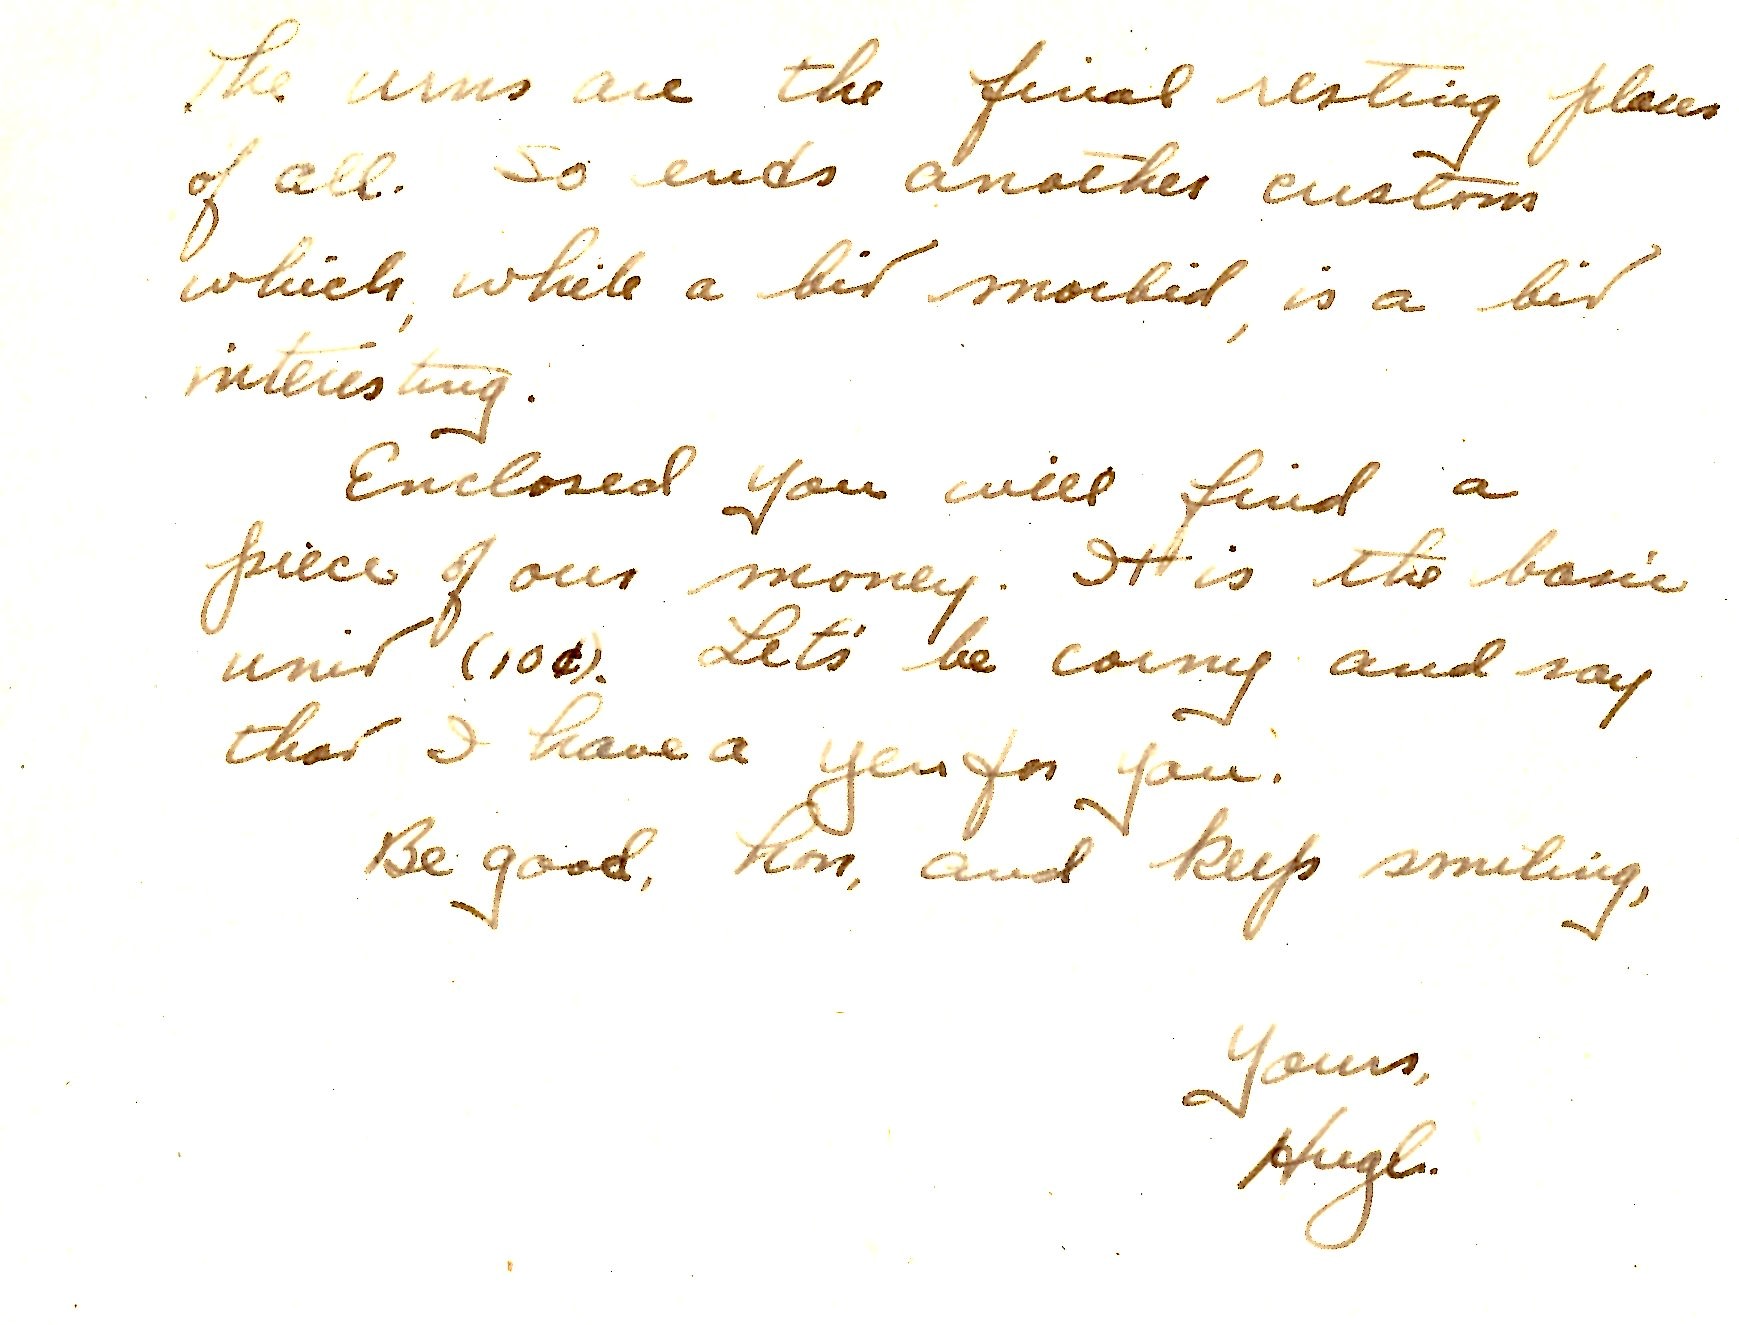 The urns are the final resting places
of all. So ends another custom
which, while a bit morbid, is a bit
interesting.
Enclosed you will find a
piece of our money. It is the basic
unit (10¢). Let's be corny and say
that I have a yen for you.
Be good, hon, and keep smiling,
Yours,
Hugh.